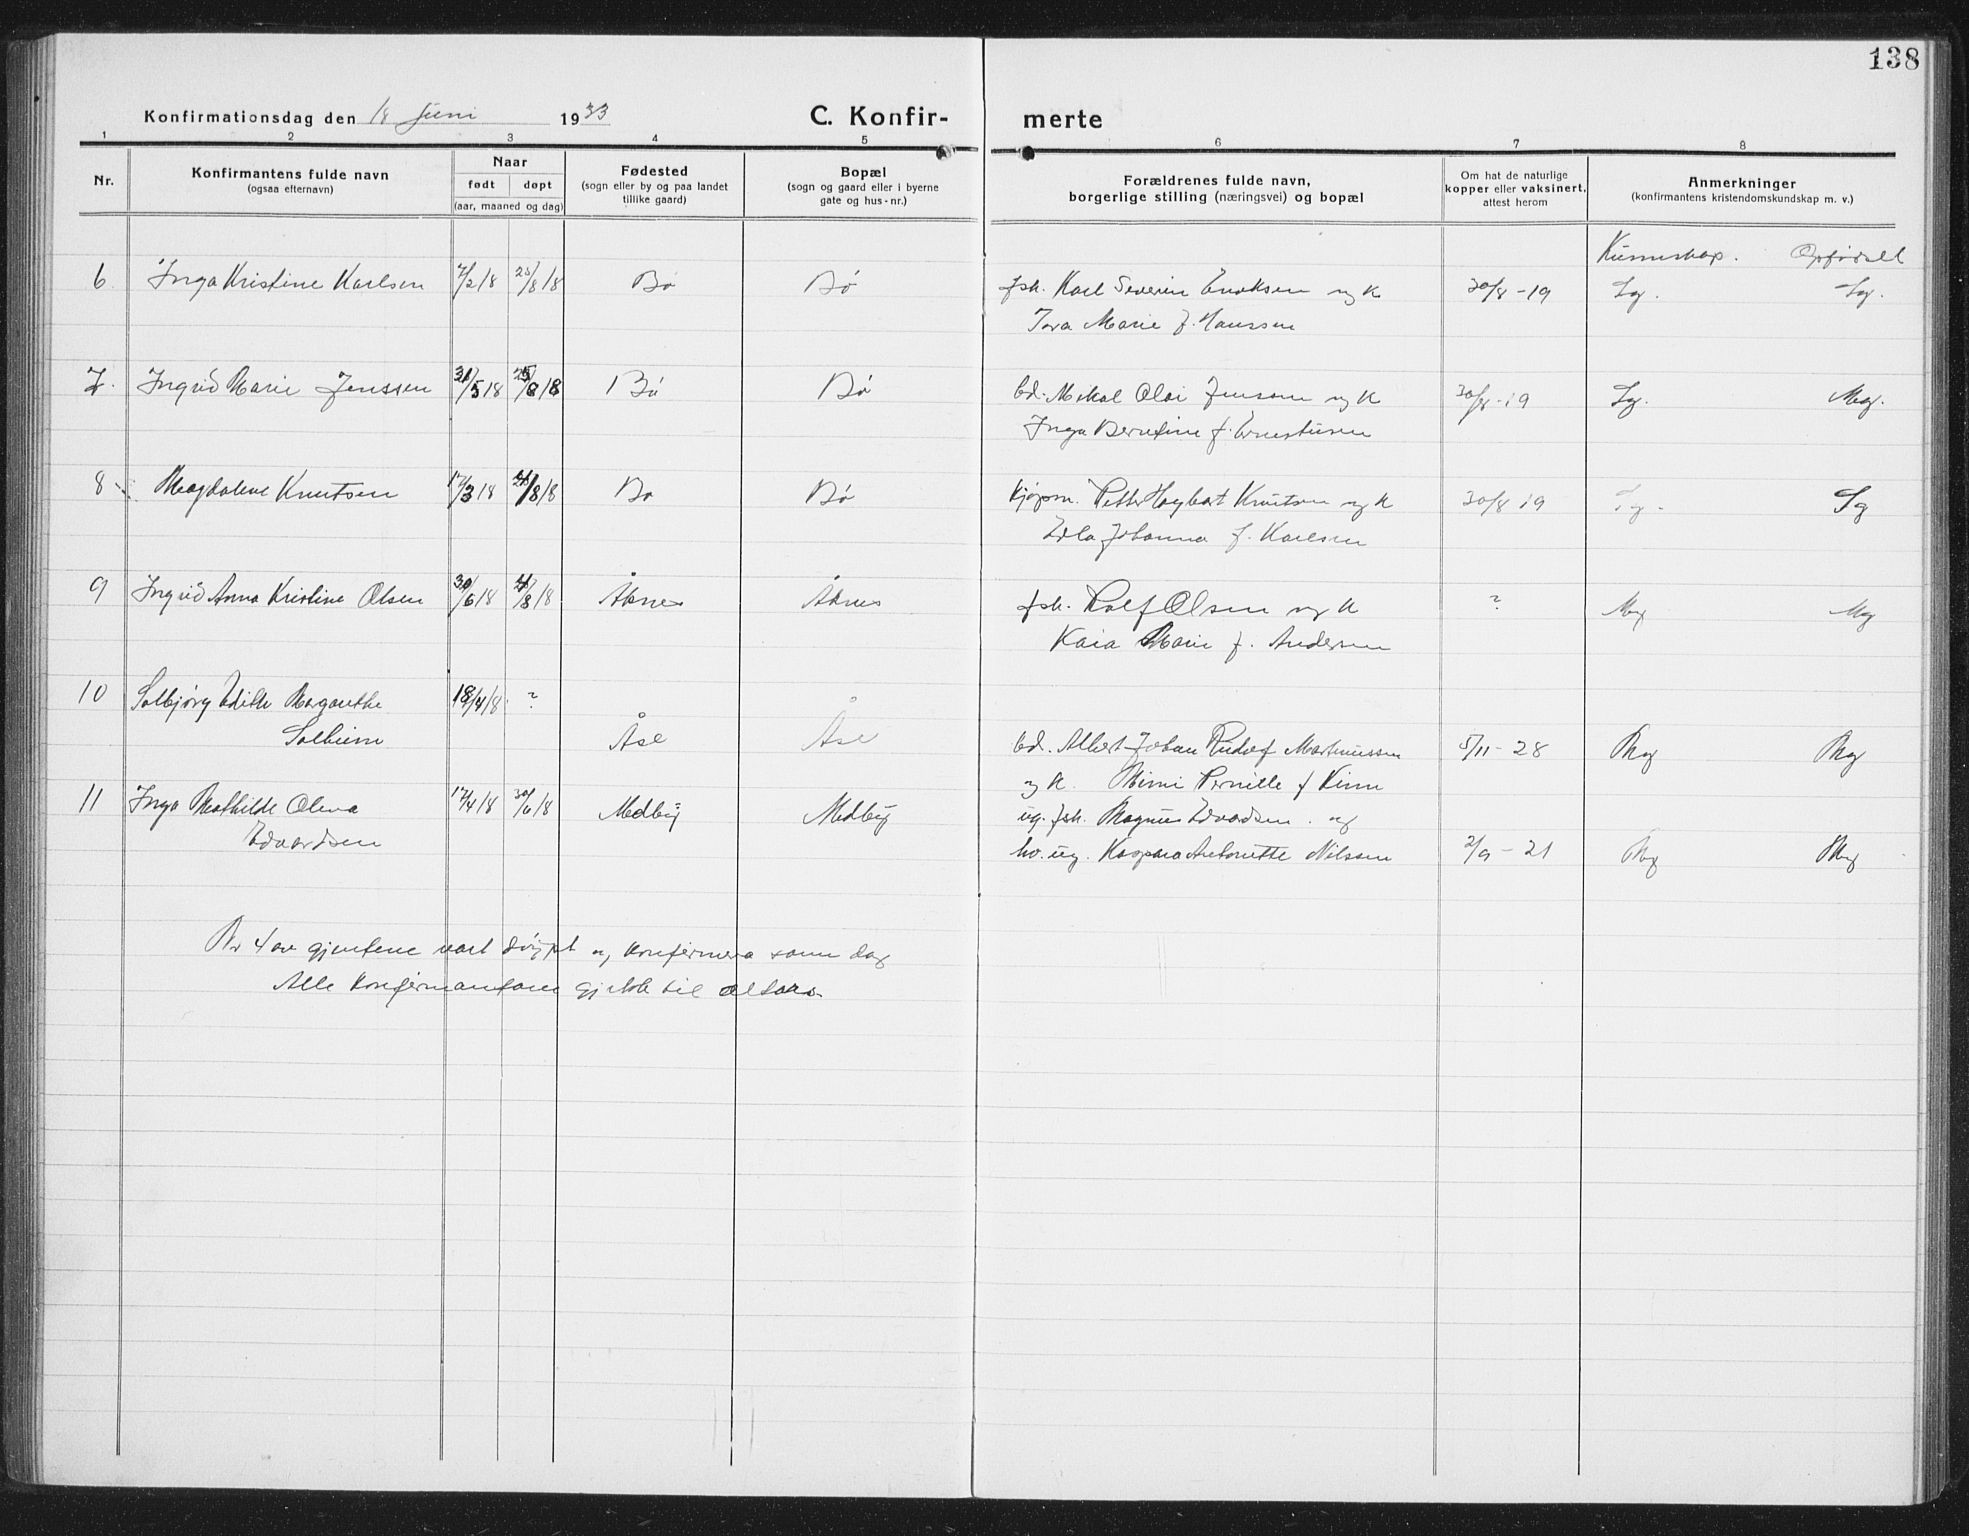 138
Konfirmationsdag den 18 Juni 1933
C. Konfir-
merte
1 2 3 4 5 6 7 8
Nr.
Konfirmantens fulde navn
(ogsaa efternavn)
Naar
født døpt
(aar, maaned og dag)
Fødested
(sogn eller by og paa landet
tillike gaard)
Bopæl
(sogn og gaard eller i byerne
gate og hus-nr.)
Forældrenes fulde navn,
borgerlige stilling (næringsvei) og bopæl
Om hat de naturlige
kopper eller vaksinert,
attest herom
Anmerkninger
(konfirmantens kristendomskundskap m. v.)
Kunnskap. Opførsel
6 Inga Kristine Karlsen 7/2 18 25/8 18 Bø Bø fsk. Karl Severin Eriksen og k 30/8-19 Sg. Sg.
Tora Marie f. Hanssen
7. Ingrid Marie Jenssen 31/5 18 25/8 18 Bø Bø Mikal Olai Jensen og k 30/8-19 Sg. Mg.
Inga Berntine f. Ernestusen
8 Magdalene Knutsen 17/3 18 /8 18 Bø Bø Kjøpm. Petter Hagbart Knutsen og k 30/8 19 Sg. Sg
Edla Johanna f. Karlsen
9 Ingrid Anna Kristine Olsen 30/6 18 /8 18 Åknes Åknes fsk. Rolf Olsen og k ? Mg Mg
Kaia Marie f. Andersen
10 Solbjørg Edith Margarethe 18/4 18 ?
Åse Åse Albert Johan Rudolf Martinussen 5/11-28 Mg Mg
og k. Mimi Pernille f Kinn
11 Inga Mathilde Olena 17/4 18 30/6 18 Medby Medby ug. fsk. Magnus Edvardsen. og
Edvardsen ug. Kaspara Antonette Nilssen 2/9-21 Mg Mg
Nr 4 av gjentene vart døypt og konfirmera same dag
Alle konfirmantane gjekk til altars